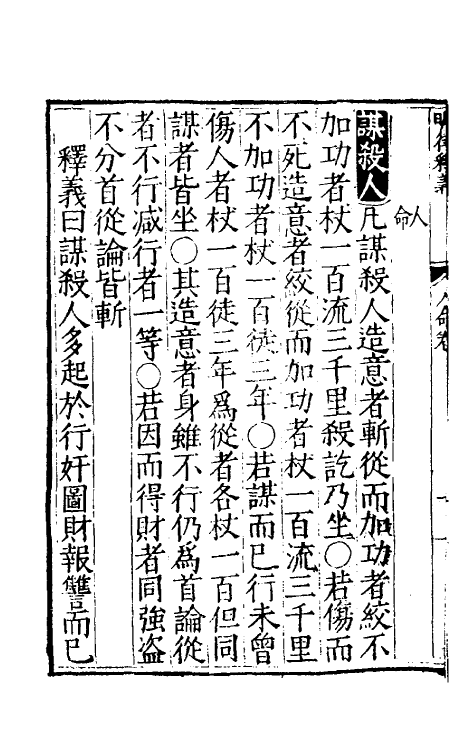 人命
謀殺人凡謀殺人造意者斬從而加功者絞不
加功者杖一百流三千里殺訖乃坐○若傷而
不死造意者絞從而加功者杖一百流三千里
不加功者杖一百徒三年○若謀而已行未曾
傷人者杖一百徒三年爲從者各杖一百但同
謀者皆坐○其造意者身雖不行仍爲首論從
者不行减行者一等○若因而得財者同強盗
不分首從論皆斬
釋義曰謀殺人多起於行奸圖財報讐而已